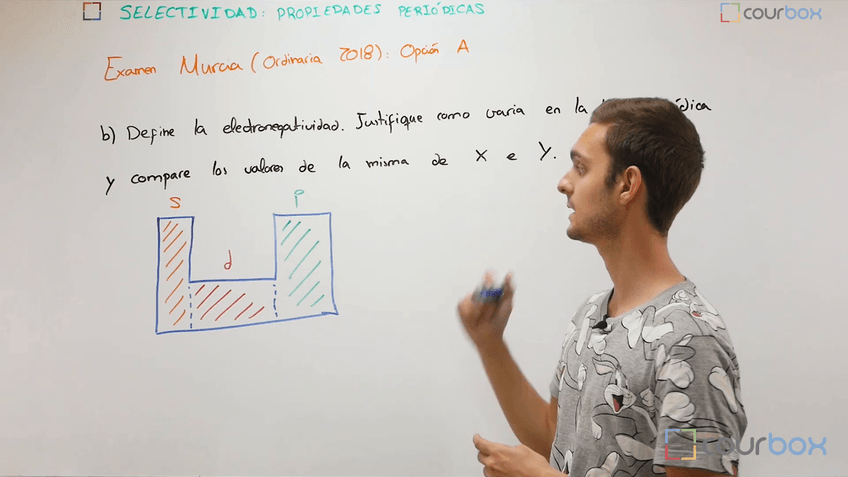 SELECTIVIDAD: PROPIEDADES PERIÓDICAS
courbox
Examen Murcia (Ordinaria 2018): Opción A
b) Define la electronegatividad. Justifique como varia en la
y compare los valores de la misma de X e Y.
S
P
d
courbox